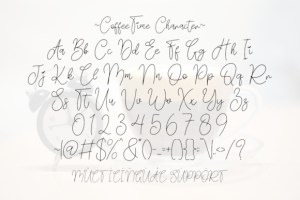 ~CoffeeTime Character~
Aa Bb Cc Dd Ee Ff Gg Hh Ii
Jj Kk Ll Mm Nn Oo Pp Qq Rr
Ss Tt Uu Vv Ww Xx Yy Zz
0 1 2 3 4 5 6 7 8 9
MULTILINGUAL SUPPORT